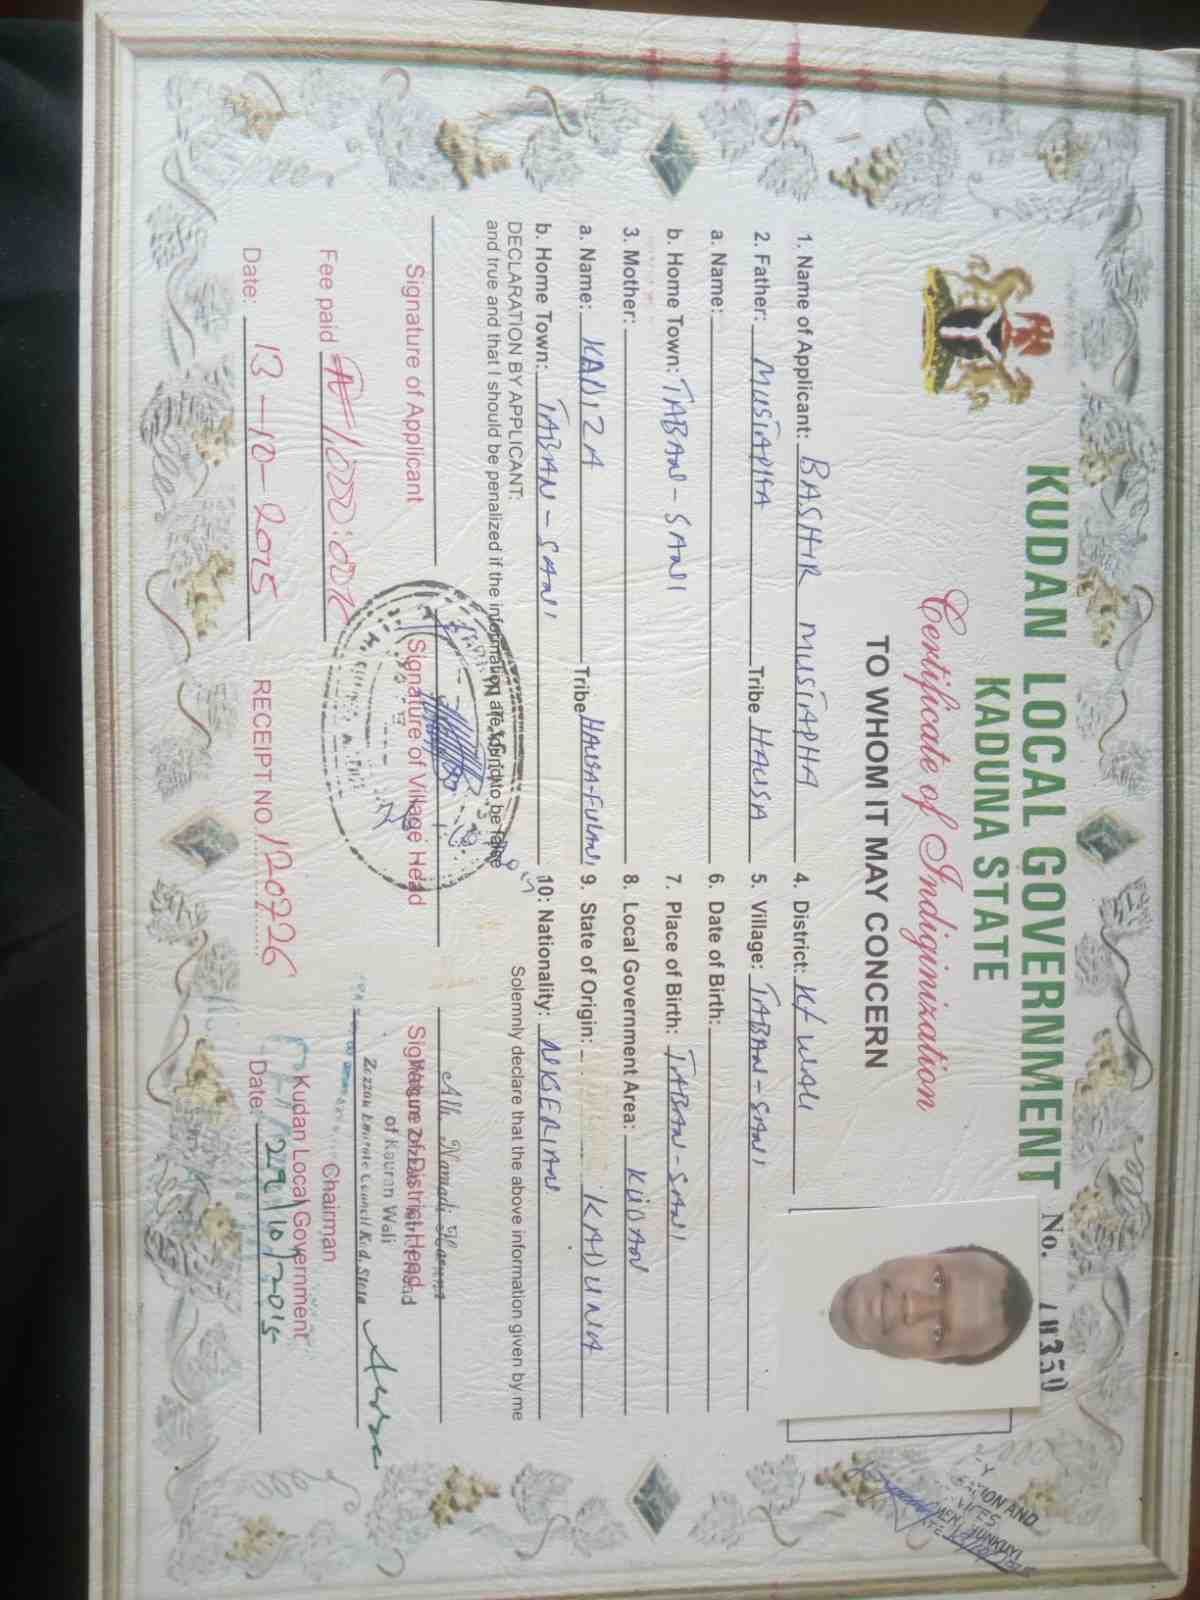 KUDAN LOCAL GOVERNMENT
No.
KADUNA STATE
Certificate of Indiginization
TO WHOM IT MAY CONCERN
1. Name of Applicant: BASHIR MUSTAPHA
2. Father: MUSTAPHA Tribe HAUSA
a. Name:
b. Home Town: TABAN-SANI
3. Mother:
a. Name: KADIZA Tribe HAUSA-FULANI
b. Home Town: TABAN-SANI
4. District: K/WALI
5. Village: TABAN-SANI
6. Date of Birth:
7. Place of Birth: TABAN-SANI
8. Local Government Area: KUDAN
9. State of Origin: KADUNA
10: Nationality: NIGERIAN
DECLARATION BY APPLICANT: Solemnly declare that the above information given by me
and true and that I should be penalized if the information are found to be false
Signature of Applicant
Signature of Village Head
Signature of District Head
of Kauran Wali
Fee paid ₦1,000:00K
Chairman
Kudan Local Government
Date: 13-10-2015
RECEIPT NO. 120726
Date: 29/10/2015